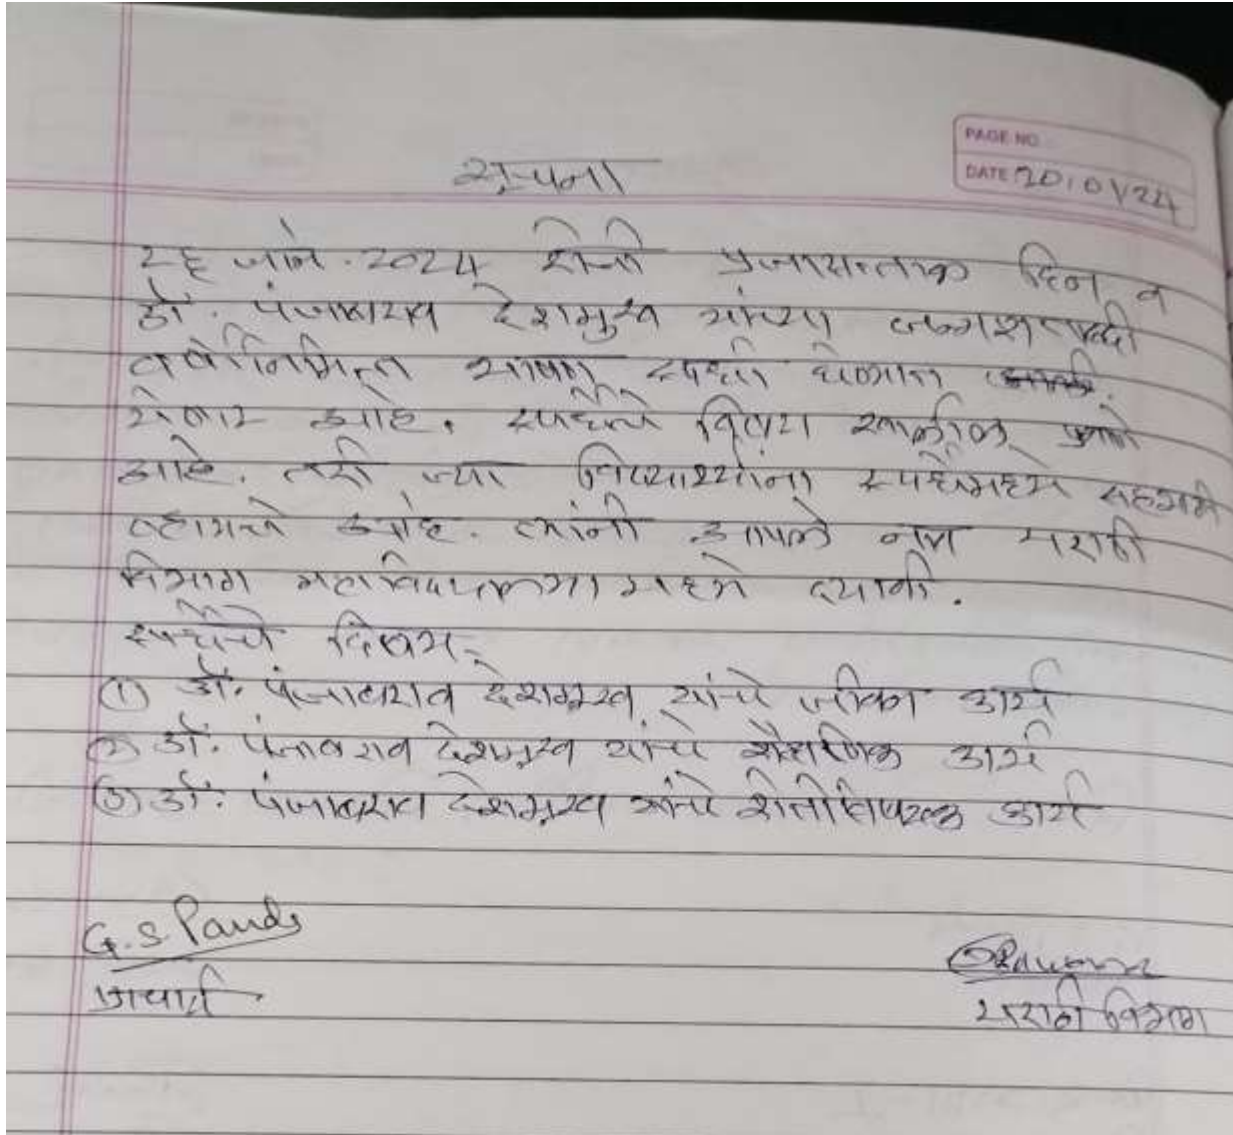 सूचना
PAGE NO.
DATE 20/01/24
२६ जाने. 2024 रोजी प्रजासत्ताक दिन व
डॉ. पंजाबराव देशमुख यांच्या जन्मशताब्दी
वर्षानिमित्त भाषण स्पर्धा घेण्यात
येणार आहे. स्पर्धेचे विषय खालील प्रमाणे
आहे. तरी ज्या विद्यार्थ्यांना स्पर्धेमध्ये सहभागी
व्हायचे आहे. त्यांनी आपले नाव मराठी
विभाग महाविद्यालया मध्ये द्यावी.
स्पर्धेचे विषय:-
① डॉ. पंजाबराव देशमुख यांचे जीवन कार्य
② डॉ. पंजाबराव देशमुख यांचे शैक्षणिक कार्य
③ डॉ. पंजाबराव देशमुख यांचे शेतीविषयक कार्य
G. S. Pande
प्राचार्य
मराठी विभाग